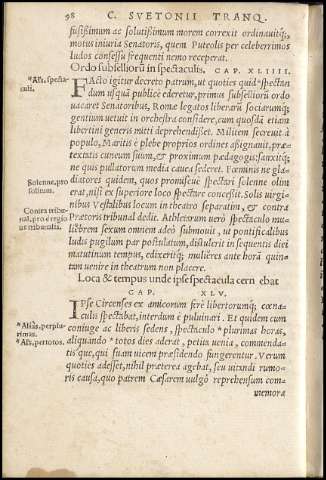 98 C. SVETONII TRANQ.
fusißimum ac solutißimum morem correxit ordinauitq;,
motus iniuria Senatoris, quem Puteolis per celeberrimos
ludos consessu frequenti nemo receperat.
Ordo subselliorū in spectaculis. CAP. XLIIII.
*Ali. specta-
culi.
FActo igitur decreto patrum, ut quoties quid *spectan
dum usquā publicè ederetur, primus subsellioru ordo
uacaret Senatoribus, Romæ legatos liberarū sociarumq;
gentium uetuit in orchestra considere, cum quosdā etiam
libertini generis mitti deprehendisset. Militem secreuit à
populo, Maritis è plebe proprios ordines aßignauit, præ-
textatis cuneum suum, & proximum pædagogis: sanxitq;
ne quis pullatorum media cauea sederet. Fœminis ne gla-
diatores quidem, quos promiscuè spectari solenne olim
Solenne, pro
solitum.
erat, nisi ex superiore loco spectare conceßit. Solis uirgi-
nibus Vestalibus locum in theatro separatim, & contra
Contra tribu-
nal, pro è regio
ne tribunalis.
Prætoris tribunal dedit. Athletarum uerò spectaculo mu-
liebrem sexum omnem adeò submouit, ut pontificalibus
ludis pugilum par postulatum, distulerit in sequentis diei
matutinum tempus, edixeritq;, mulières ante horā quin-
tam uenire in theatrum non placere.
Loca & tempus unde ipse spectacula cernebat
CAP. XLV.
IPse Circenses ex amicorum ferè libertorumq; cœna-
culis spectabat, interdum è puluinari. Et quidem cum
coniuge ac liberis sedens, spectaculo *plurimas horas,
*Aliâs, perplu-
rimas.
aliquando *totos dies aderat, petita uenia, commenda-
*Ali. pertotos.
tis'que, qui suam uicem præsidendo fungerentur. Verum
quoties adesset, nihil præterea agebat, seu uitandi rumo-
ris causa, quo patrem Cæsarem uulgò reprehensum com-
memora